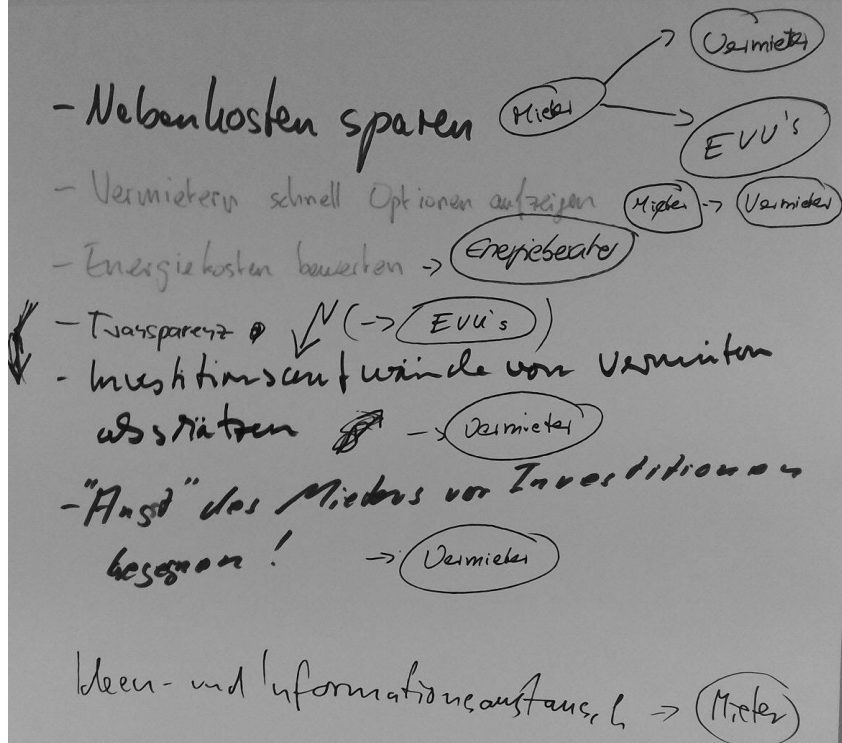 Vermieter
- Nebenkosten sparen Mieter
EVU's
- Vermietern schnell Optionen aufzeigen Mieter -> Vermieter
- Energiekosten bewerten -> Energieberater
- Transparenz (-> EVU's)
- Investitionsaufwände von Vermietern
abschätzen -> Vermieter
- "Angst" des Mieters vor Investitionen
begegnen! -> Vermieter
Ideen- und Informationsaustausch -> Mieter